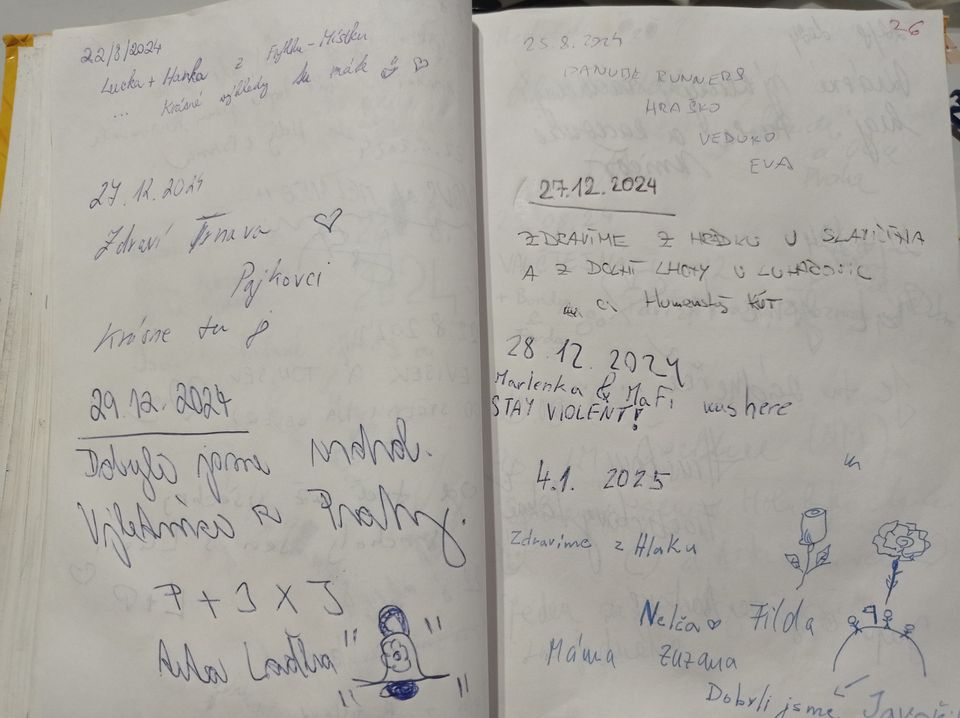 22/8/2024
Lucka + Hanka z Frýdku-Místku
... Krásné výhledy tu máte
27.12.2024
Zdraví Trnava
Pajkovci
Krásne tu je
29.12.2024
Dobyli jsme vrchol.
Výletníci z Prahy.
P + J X J
26
25.8.2024
DANUBE RUNNERS
HRAŠKO
VEDUKO
EVA
27.12.2024
ZDRAVÍME Z HRÁDKU U SLAVIČÍNA
A Z DOLNÍ LHOTY U LUHAČOVIC
28.12.2024
Marlenka & MaFi was here
STAY VIOLENT!
4.1. 2025
Zdravíme z Hlaku
Nelča Filda
Máma Zuzana
Dobyli jsme